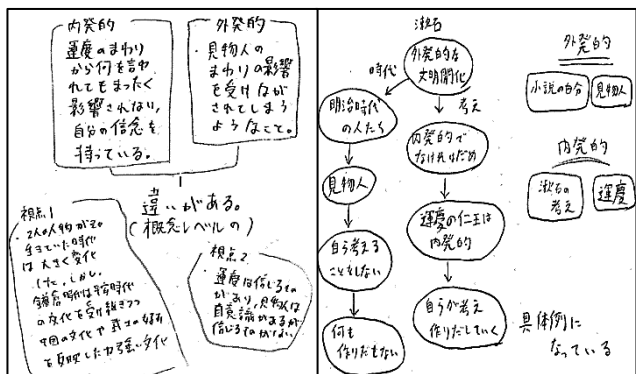 内発的
運慶のまわり
から何を言われ
れてもまったく
影響されない、
自分の信念を
持っている。
外発的
・見物人の
まわりの影響
を受けなが
されてしまう
ようなこと。
違いがある。
(概念レベルの)
視点1
・2人の人物が
生きていた時代
は大きく変化
した。しかし、
鎌倉時代は平安時代
の文化を受け継ぎつつ
中国の文化や武士の好み
を反映した力強い文化
視点2
・運慶は信じるもの
があり、見物人は
自意識があるが
信じるものがない。
漱石
外発的な
文明開化
時代
考え
明治時代
の人たち
見物人
自ら考える
こともしない
何も
作りだせない
内発的で
なければだめ
運慶の仁王は
内発的
自らが考え
作りだしていく
外発的
小説の自分
見物人
内発的
漱石の
考え
運慶
具体例に
なっている